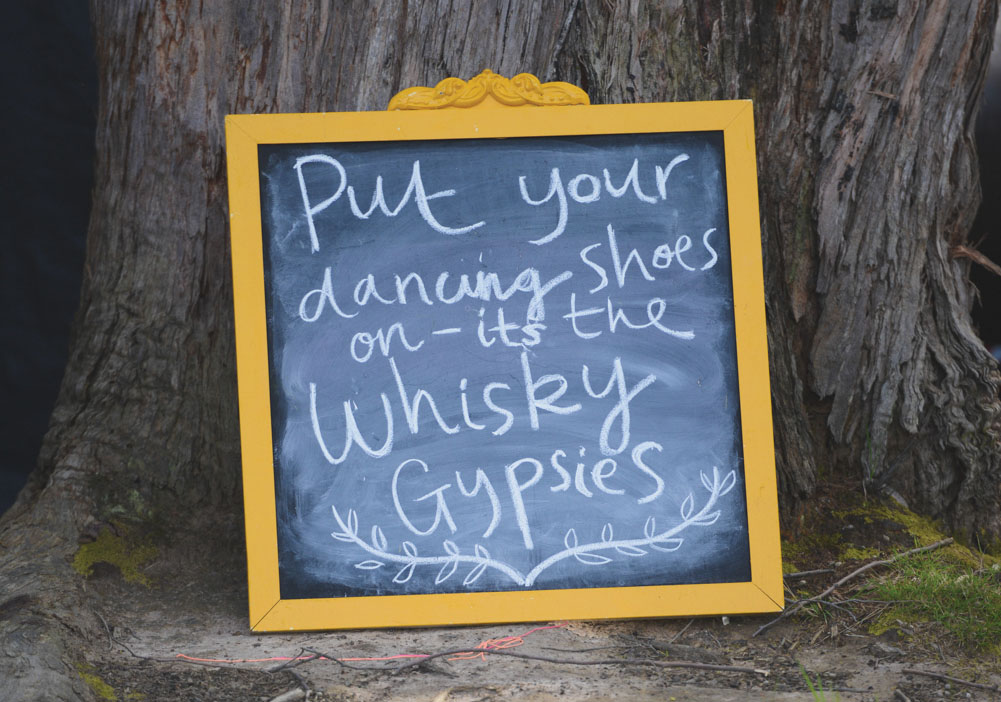 Put your
dancing shoes
on - its the
Whisky
Gypsies